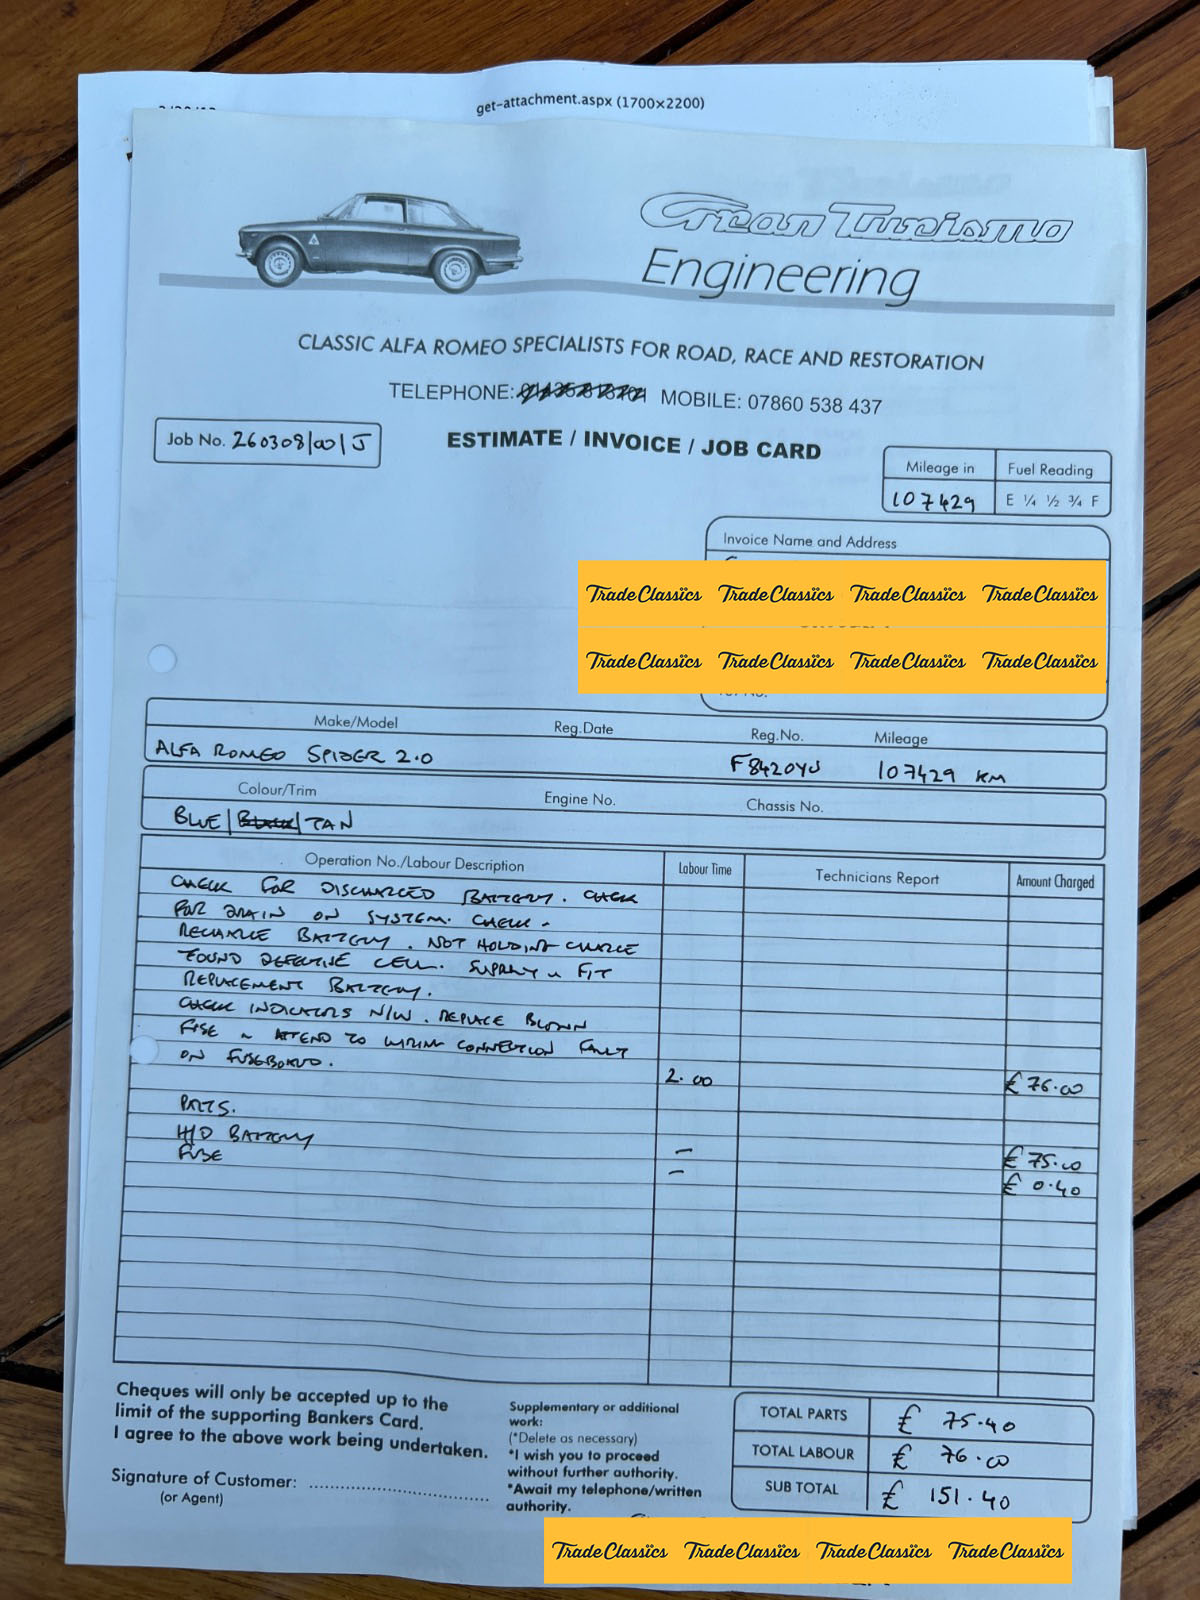 get-attachment.aspx (1700×2200)
Gran Turismo
Engineering
CLASSIC ALFA ROMEO SPECIALISTS FOR ROAD, RACE AND RESTORATION
TELEPHONE: MOBILE: 07860 538 437
Job No. 260308/00/J
ESTIMATE / INVOICE / JOB CARD
Mileage in Fuel Reading
107429 E ¼ ½ ¾ F
Invoice Name and Address
TradeClassics TradeClassics TradeClassics TradeClassics
TradeClassics TradeClassics TradeClassics TradeClassics
Make/Model Reg.Date Reg.No. Mileage
ALFA ROMEO SPIDER 2.0 F842OYU 107429 KM
Colour/Trim Engine No. Chassis No.
BLUE/BLACK/TAN
Operation No./Labour Description Labour Time Technicians Report Amount Charged
CHECK FOR DISCHARGED BATTERY. CHECK
FOR DRAIN ON SYSTEM. CHECK -
RECHARGE BATTERY. NOT HOLDING CHARGE
FOUND DEFECTIVE CELL. SUPPLY & FIT
REPLACEMENT BATTERY.
CHECK INDICATORS N/W. REPLACE BLOWN
FUSE & ATTEND TO WIRING CONNECTION FAULT
ON FUSEBOARD.
2.00 £76.00
PARTS.
H/D BATTERY - £75.00
FUSE - £0.40
Cheques will only be accepted up to the
limit of the supporting Bankers Card.
I agree to the above work being undertaken.
Signature of Customer:
(or Agent)
Supplementary or additional
work:
(*Delete as necessary)
*I wish you to proceed
without further authority.
*Await my telephone/written
authority.
TOTAL PARTS £ 75.40
TOTAL LABOUR £ 76.00
SUB TOTAL £ 151.40
TradeClassics TradeClassics TradeClassics TradeClassics